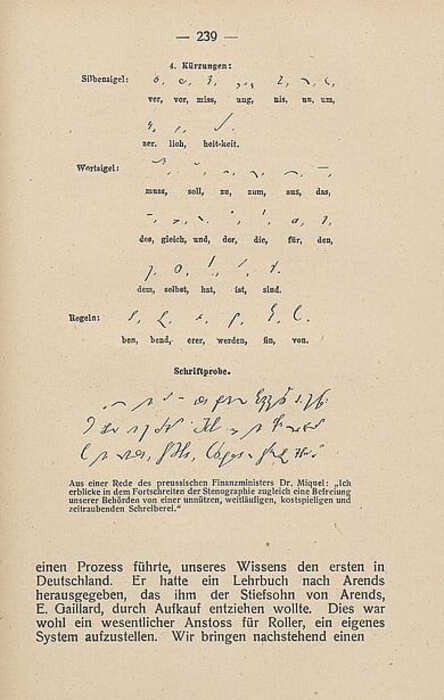 — 239 —
4. Kürzungen:
Silbensigel:
ver, vor, miss, ung, nis, un, um,
zer, lich, heit-keit.
Wortsigel:
muss, soll, zu, zum, aus, das,
des, gleich, und, der, die, für, den,
dem, selbst, hat, ist, sind.
Regeln:
ben, bend, erer, werden, fin, von.
Schriftprobe.
Aus einer Rede des preussischen Finanzministers Dr. Miquel: „Ich
erblicke in dem Fortschreiten der Stenographie zugleich eine Befreiung
unserer Behörden von einer unnützen, weitläufigen, kostspieligen und
zeitraubenden Schreiberei.“
einen Prozess führte, unseres Wissens den ersten in
Deutschland. Er hatte ein Lehrbuch nach Arends
herausgegeben, das ihm der Stiefsohn von Arends,
E. Gaillard, durch Aufkauf entziehen wollte. Dies war
wohl ein wesentlicher Anstoss für Roller, ein eigenes
System aufzustellen. Wir bringen nachstehend einen